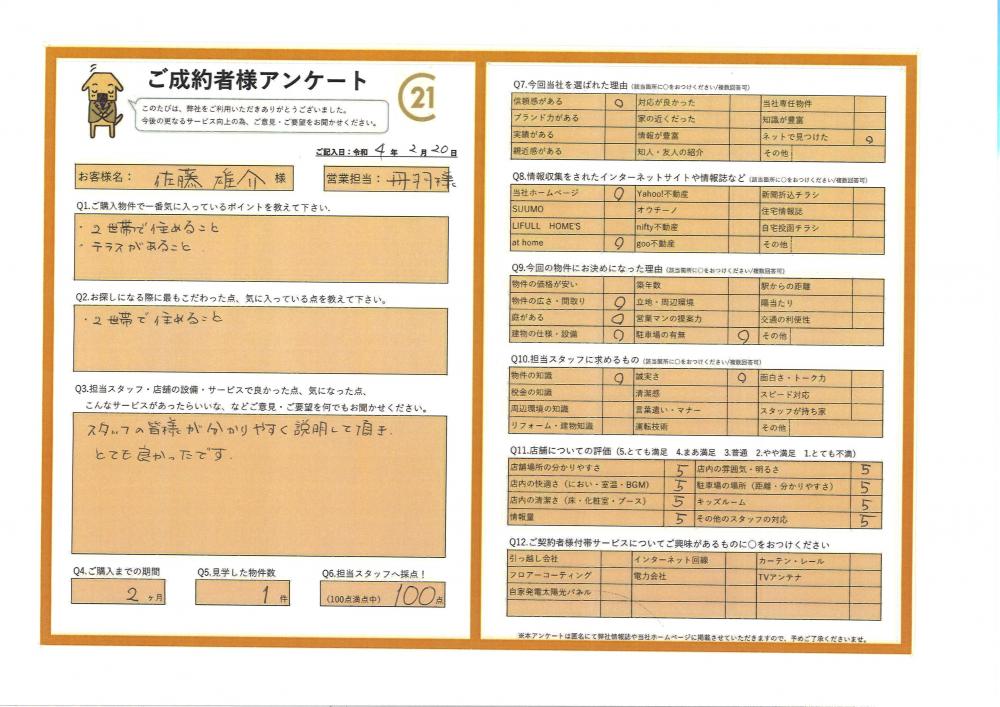 ご成約者様アンケート
21
このたびは、弊社をご利用いただきありがとうございました。
今後の更なるサービス向上の為、ご意見・ご要望をお聞かせください。
ご記入日：令和 4 年 2 月 20 日
お客様名： 佐藤 雄介 様
営業担当： 丹羽様
Q1.ご購入物件で一番気に入っているポイントを教えて下さい。
・2世帯で住めること
・テラスがあること
Q2.お探しになる際に最もこだわった点、気に入っている点を教えて下さい。
・2世帯で住めること
Q3.担当スタッフ・店舗の設備・サービスで良かった点、気になった点、
こんなサービスがあったらいいな、などご意見・ご要望を何でもお聞かせください。
スタッフの皆様が分かりやすく説明して頂き
とても良かったです.
Q4.ご購入までの期間
2 ヶ月
Q5.見学した物件数
1 件
Q6.担当スタッフへ採点！
(100点満点中) 100 点
Q7.今回当社を選ばれた理由（該当箇所に○をおつけください/複数回答可）
信頼感がある ○ 対応が良かった 当社専任物件
ブランド力がある 家の近くだった 知識が豊富
実績がある 情報が豊富 ネットで見つけた ○
親近感がある 知人・友人の紹介 その他
Q8.情報収集をされたインターネットサイトや情報誌など（該当箇所に○をおつけください/複数回答可）
当社ホームページ ○ Yahoo!不動産 新聞折込チラシ
SUUMO オウチーノ 住宅情報誌
LIFULL HOME'S nifty不動産 自宅投函チラシ
at home ○ goo不動産 その他
Q9.今回の物件にお決めになった理由（該当箇所に○をおつけください/複数回答可）
物件の価格が安い 築年数 駅からの距離
物件の広さ・間取り ○ 立地・周辺環境 陽当たり
庭がある ○ 営業マンの提案力 交通の利便性
建物の仕様・設備 ○ 駐車場の有無 ○ その他
Q10.担当スタッフに求めるもの（該当箇所に○をおつけください/複数回答可）
物件の知識 ○ 誠実さ ○ 面白さ・トーク力
税金の知識 清潔感 スピード対応
周辺環境の知識 言葉遣い・マナー スタッフが持ち家
リフォーム・建物知識 運転技術 その他
Q11.店舗についての評価（5.とても満足 4.まあ満足 3.普通 2.やや満足 1.とても不満）
店舗場所の分かりやすさ 5 店内の雰囲気・明るさ 5
店内の快適さ（におい・室温・BGM） 5 駐車場の場所（距離・分かりやすさ） 5
店内の清潔さ（床・化粧室・ブース） 5 キッズルーム 5
情報量 5 その他のスタッフの対応 5
Q12.ご契約者様付帯サービスについてご興味があるものに○をおつけください
引っ越し会社 インターネット回線 カーテン・レール
フロアーコーティング 電力会社 TVアンテナ
自家発電太陽光パネル
※本アンケートは匿名にて弊社情報誌や当社ホームページに掲載させていただきますので、予めご了承くださいませ。